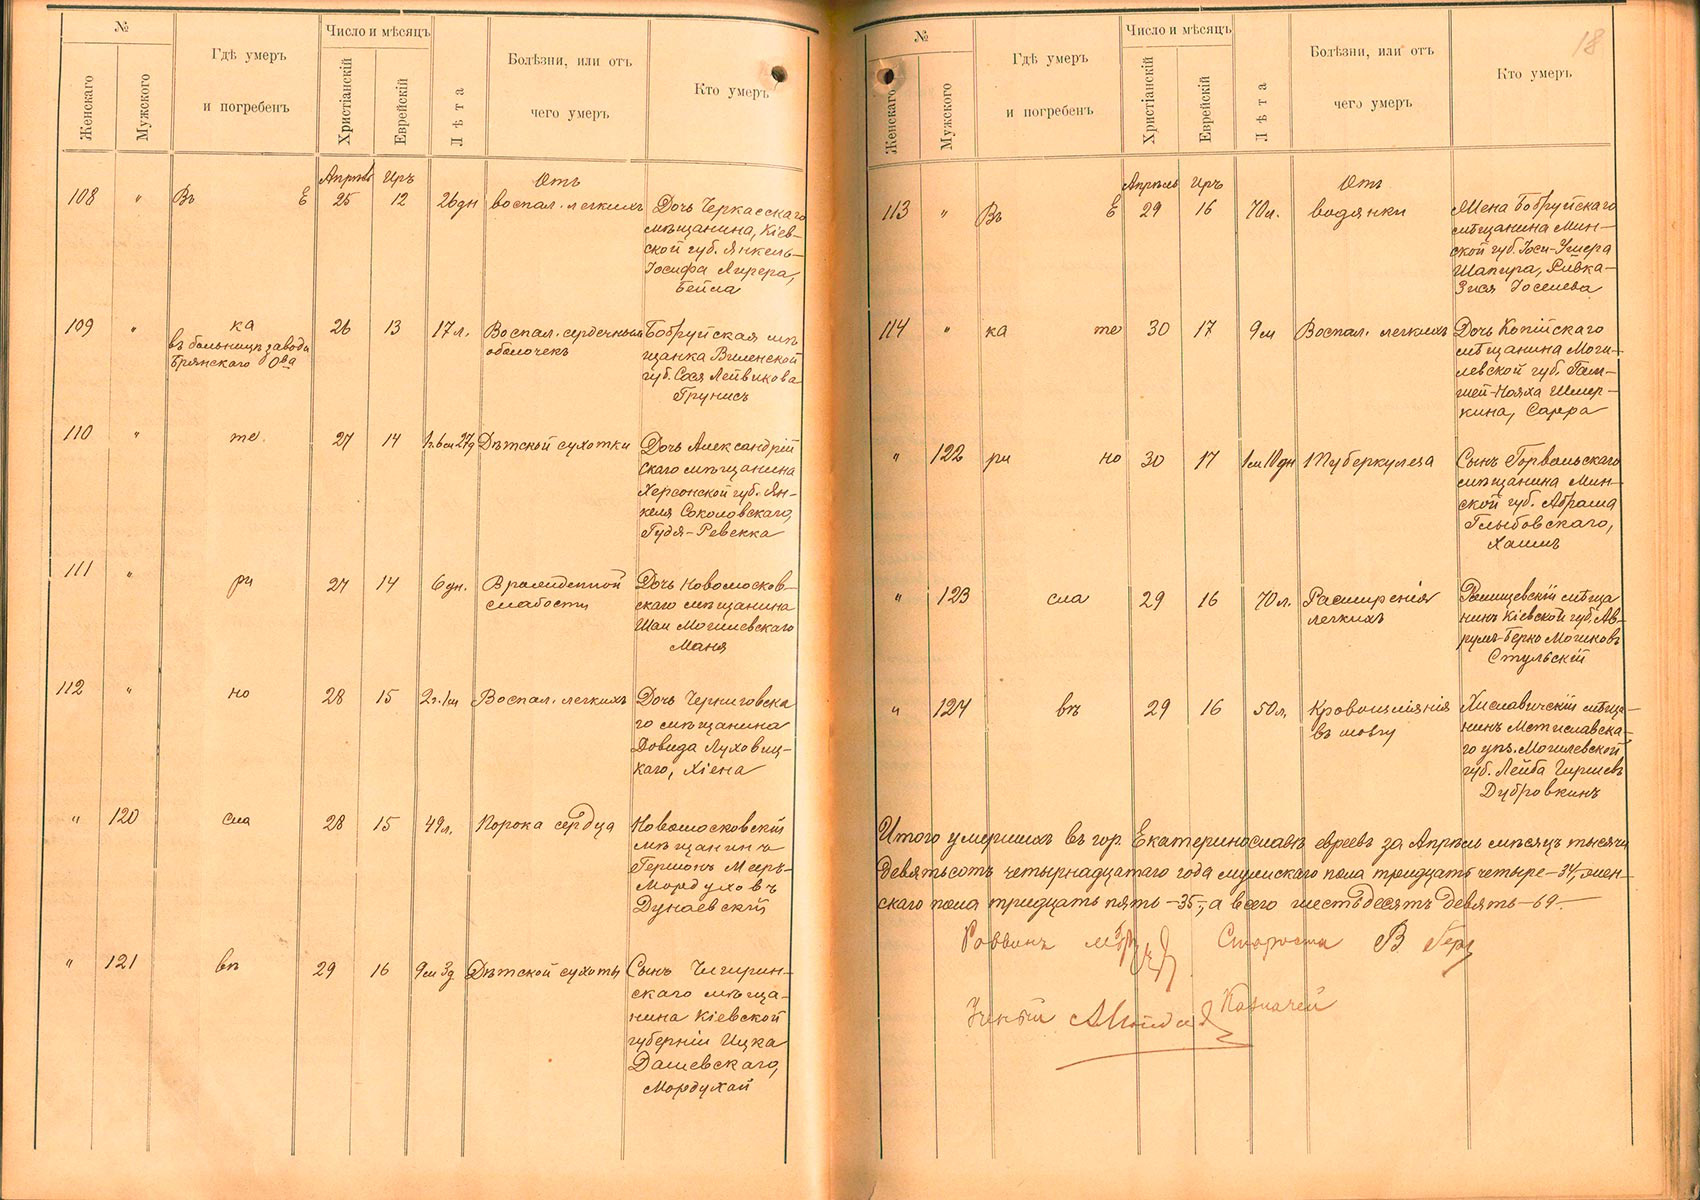 №
Женскаго
Мужского
Гдѣ умеръ
и погребенъ
Число и мѣсяцъ
Христіанскій
Еврейскій
Лѣта
Болѣзни, или отъ
чего умеръ
Кто умеръ
Апрѣль Иръ Отъ
108 " Въ Е 25 12 26 дн воспал. легкихъ Дочь Черкасскаго
мѣщанина, Кіев-
ской губ. Янкель-
Іосифа
Бейла
109 " ка 26 13 17 л. Воспал. сердечныхъ Бобруйская мѣ
въ больницѣ завода
Брянского О-ва
оболочекъ
щанка Виленской
губ. Сося Лейвикова
Грунисъ
110 " те 27 14 1г. 6м 27д Дѣтской сухотки Дочь Александрій
скаго мѣщанина
Херсонской губ. Ян-
келя Соколовскаго,
Гудя-Ревекка
111 " ри 27 14 6 дн. Врожденной Дочь Новомосков-
слабости
скаго мѣщанина
Шаи Могилевскаго
Маня
112 " но 28 15 2г. 1м Воспал. легкихъ Дочь Черниговска
го мѣщанина
Довида Луховиц-
каго, Хіена
" 120 сла 28 15 49 л. Порока сердца Новомосковскій
мѣщанинъ
Гершонъ Мееръ-
Мордуховъ
Дунаевскій
" 121 вѣ 29 16 9м 3д Дѣтской сухоты Сынъ Чигирин-
скаго мѣща-
нина Кіевской
губерніи Ицка
Дашевскаго,
Мордухай
18
№
Женскаго
Мужского
Гдѣ умеръ
и погребенъ
Число и мѣсяцъ
Христіанскій
Еврейскій
Лѣта
Болѣзни, или отъ
чего умеръ
Кто умеръ
Апрѣль Иръ Отъ
113 " Въ Е 29 16 70 л. водянки Жена Бобруйскаго
мѣщанина Мин-
ской губ.
Шапира, Ривка-
Зися Іоселева
114 " ка те 30 17 9м Воспал. легкихъ Дочь Копійскаго
мѣщанина Моги-
левской губ.
Шмер-
кина, Сарра
" 122 ри но 30 17 1м 10 дн Туберкулеза Сынъ Горвольскаго
мѣщанина Мин-
ской губ. Абрама
Глыбовскаго,
Хаимъ
" 123 сла 29 16 70 л. Расширенія
легкихъ
мѣща
нинъ Кіевской губ. Ав-
румъ-Берко
Стульскій
" 124 вѣ 29 16 50 л. Кровоизліянія Хиславичскій мѣща-
въ мозгу
нинъ Мстиславска-
го уѣз. Могилевской
губ. Лейба Гиршевъ
Дубровкинъ
Итого умершихъ въ гор. Екатеринославѣ евреевъ за Апрѣль мѣсяцъ тысяча
девятьсотъ четырнадцатаго года мужскаго пола тридцать четыре -34, жен-
скаго пола тридцать пять -35-, а всего шестьдесятъ девять -69-
Раввинъ Староста В
Ученый Казначей